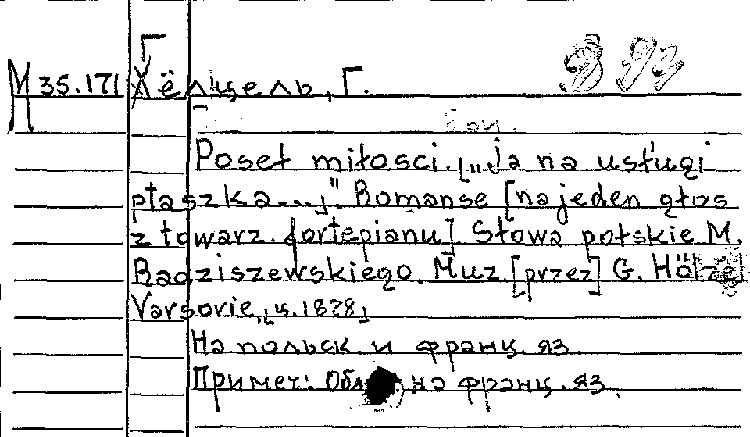 Г
М 35.171 Хёлцель, Г.
Poseł miłosci. [„Ja na usługi
ptaszka...]". Romanse [na jeden głos
z towarz. fortepianu] Słowa polskie M.
Radziszewskiego. Muz [przez] G. Hölzel
Varsovie, [ц. 1878]
На польск и франц. яз
Примеч: Обл на франц. яз.